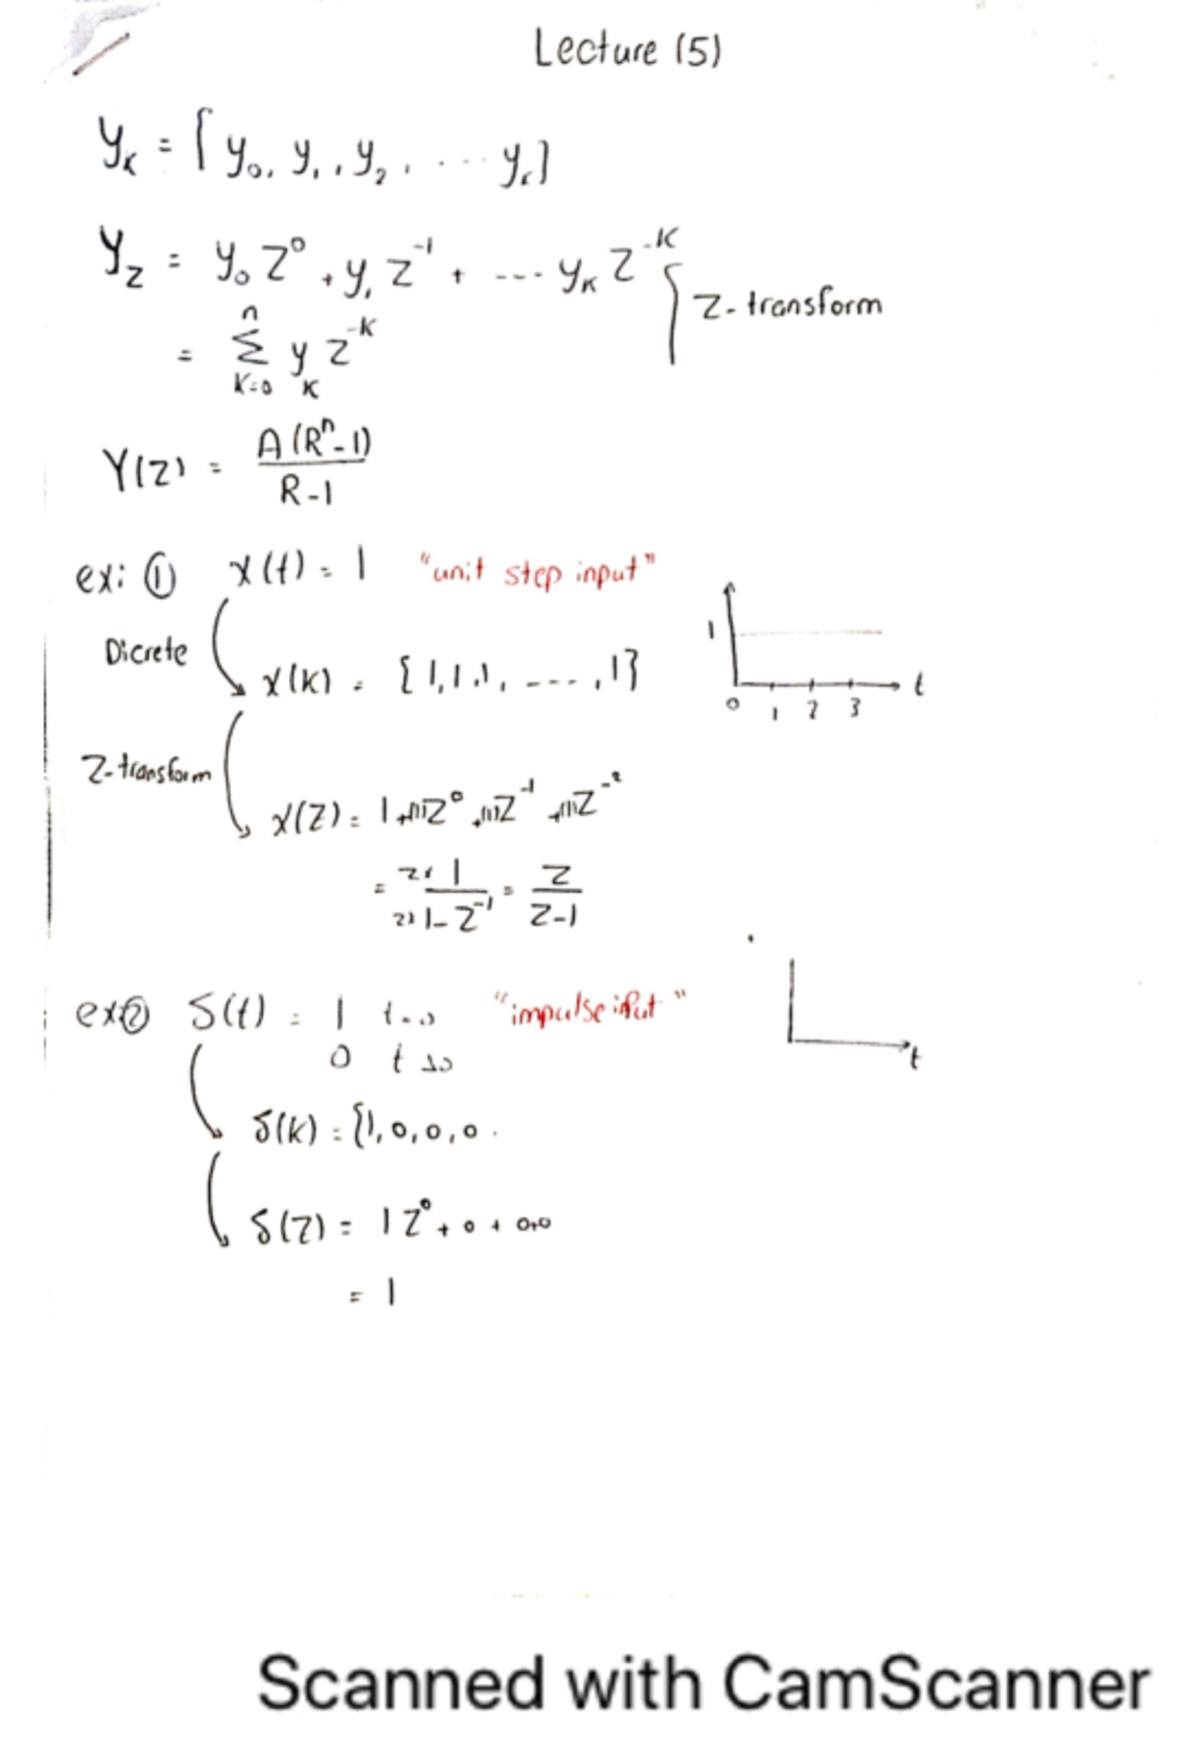 Lecture (5)
y_K = [y_0, y_1, y_2, ... y_K]
y_z = y_0 Z^0 + y_1 Z^-1 + --- y_K Z^-K
Z-transform
= Σ_{K=0}^{n} y_K Z^-K
Y(Z) = A(R^n - 1) / R - 1
ex: ① x(t) = 1 "unit step input"
1
0 1 2 3 t
Dicrete
x(k) = {1,1,1, ----, 1}
Z-transform
X(Z) = 1 Z^0 Z^-1 Z^-2
= 1 / 1 - Z^-1 = Z / Z-1
ex② δ(t) = 1 "impulse
0 t
t
δ(k) = {1,0,0,0.
δ(Z) = 1 Z^0 + 0 + 0+0
= 1
Scanned with CamScanner